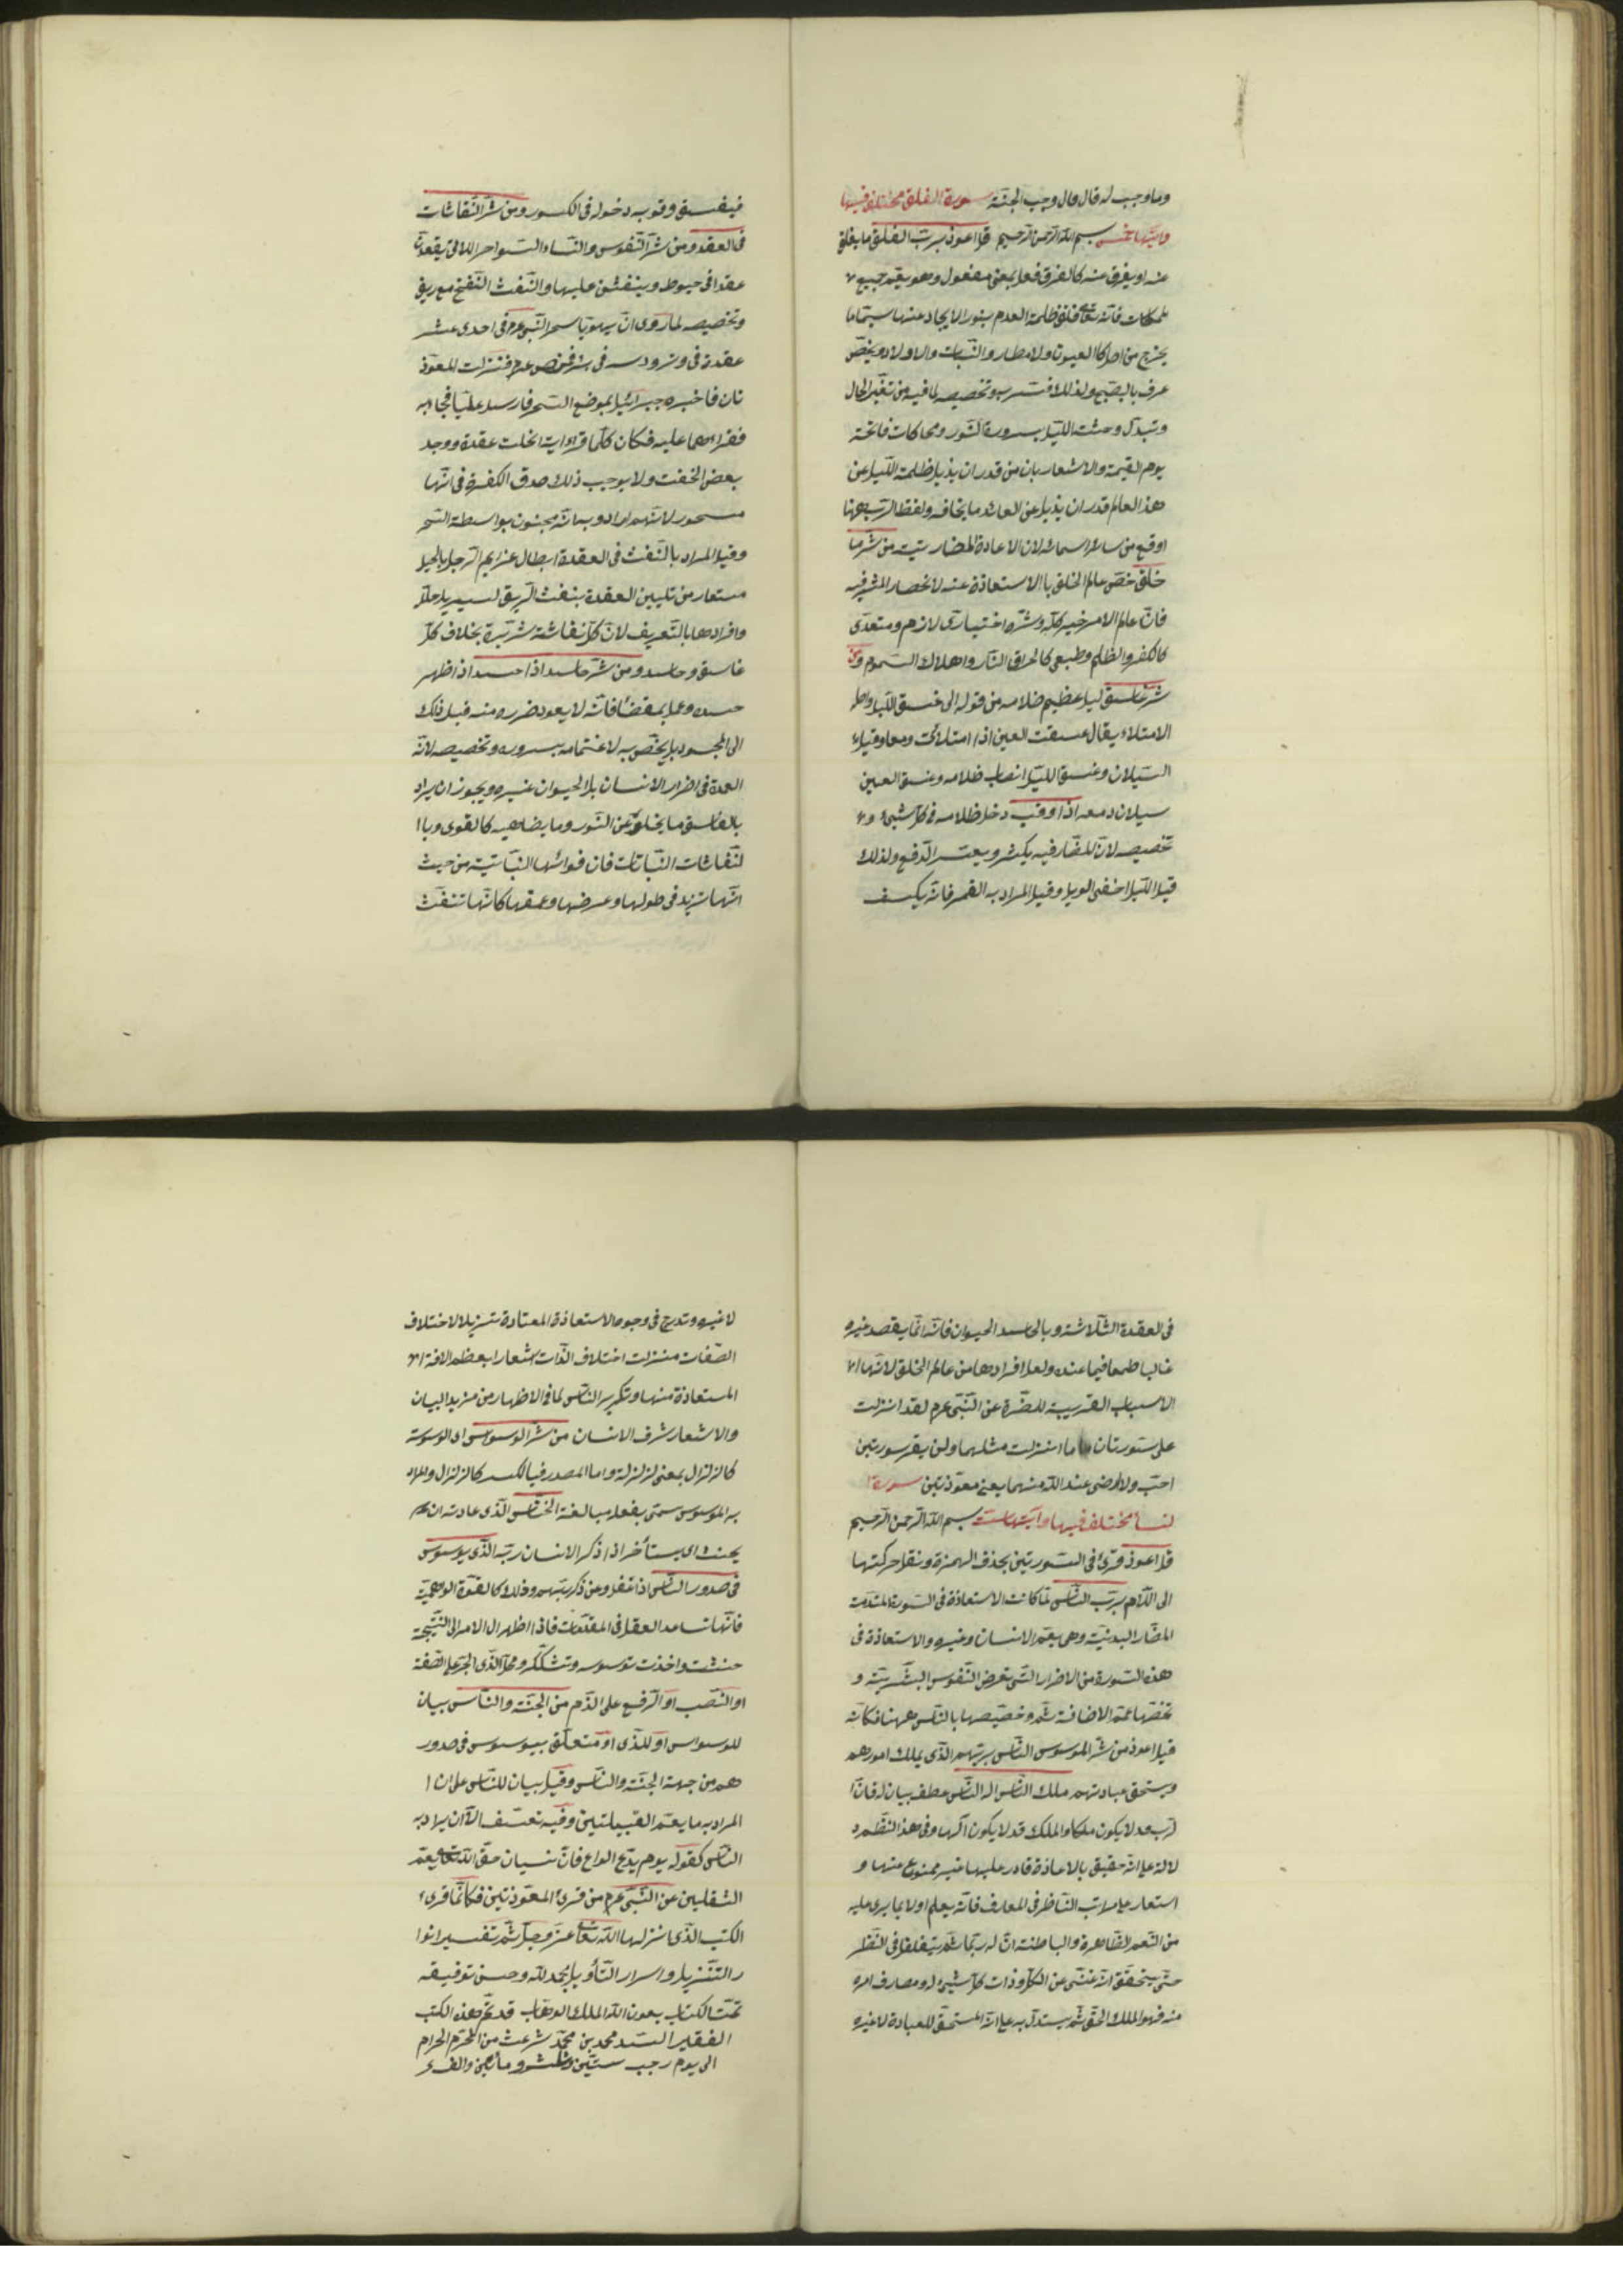 وما وجب له قال قال وجب الجنة سورة الفلق مختلف فيها
وايتها خمس بسم الله الرحمن الرحيم قل اعوذ برب الفلق ما يفلق
عنه او يفرق عنه كالفرق فعل بمعنى مفعول وهو يعم جميع
لممكنات فانه تعالى فلق ظلمة العدم بنور الايجاد عنها سيما ما
يخرج من اصل كالعيون ولامطار والنبات والاولاد ويخص
عرف بالصبح ولذلك فسر به وتخصيصه لما فيه من تغير الحال
وتبدل وحشت الليل بسرورة النور ومحاكات فاتحة
يوم القيمة والاشعار بان من قدر ان يذيل ظلمة الليل عن
هذ العالم قدر ان يذيل عن العائد ما يخافه ولفظ الرب ههنا
اوقع من سائر اسمائه لان الاعاذة المضار ستيت من شر ما
خلق خص عالم الخلق باالاستعاذة عنه لانحصار الشر فيه
فان عالم الامر خير كله وشره اختيارى لازم ومتعدى
كالكفر والظلم وطبعى كاحراق النار واهلاك السموم ومن
شر غاسق ليل عظيم ظلامه من قوله الى غسق الليل واصله
الامتلاء يقال غسقت العين اذا امتلائت ومعا وقيل
السيلان وغسق الليل انصاب ظلامه وغسق العين
سيلان دمعه اذا وقب دخل ظلامه فى كل شيئ و
تخصيصه لان المضار فيه يكثر ويعسر الدفع ولذلك
قيل الليل اخفى الويل وقيل المراد به القمر فانه يكسف
فيغسق وقوبه دخوله فى الكسور ومن شر النفاثات
فى العقد ومن شر النفوس والنساء السواحر اللاتى يعقدن
عقدا فى خيوط وينفثن عليها والنفث النفخ مع ريق
وتخصيصه لما روى ان يهوديا سحر النبى عم فى احدى عشر
عقدة فى وتر ودسه فى بئر فمرض عم فنزلت المعوذ
تان فاخبره جبرائيل بموضع السحر فارسل عليا فجاء به
فقراهما عليه فكان كلما قراء اية انحلت عقدة ووجد
بعض الخفت ولا يوجب ذلك صدق الكفرة فى انها
مسحور لانهم ارادو به انه مجنون بواسطة السحر
وقيل المراد بالنفث فى العقدة ابطال عزايم الرجل بالحيل
مستعار من تليين العقدة بنفث الريق ليسهل حلها
وافرادها بالتعريف لان كل نفاثة شريرة بخلاف كل
غاسق وحاسد ومن شر حاسد اذا حسد اذا ظهر
حسده وعمل بمقتضا فانه لا يعود ضرره منه قبل ذلك
الى المحسود بل يخص به لاغتمامه بسروره وتخصيصه لانه
العمدة فى اضرار الانسان بل الحيوان غيره ويجوز ان يراد
بالغاسق ما يخلو عن النور وما يضاهيه كالقوى وباا
لنفاثات النباتات فان قوائها النباتية من حيث
انها تزيد فى طولها وعرضها وعمقها كانها تنفث
فى العقدة الثلاثة وبالحاسد الحيوان فانه انما يقصد غيره
غالبا طمعا فيما عنده ولعل افرادها من عالم الخلق لانها
الاسباب القريبة للمضرة عن النبى عرم لقد انزلت
على سورتان ما انزلت مثلهما ولن يقر سورتين
احب ولا ارضى عند الله منهما يعنى معوذتين سورة
لنسأ مختلف فيها وايتها ست بسم الله الرحمن الرحيم
قل اعوذ قرئ فى السورتين بحذف الهمزة ونقل حركتها
الى اللام برب الناس لما كانت الاستعاذة فى السورة المتقدمة
المضار البدنية وهى يعم الانسان وغيره والاستعاذة فى
هذه السورة من الاضرار التى تعرض النفوس البشرية و
تخصها عمه الاضافة ثم وخصيصها بالناس ههنا فكانه
قيل اعوذ من شر الموسوس الناس بربهم الذى يملك امورهم
ويستحق عبادتهم ملك الناس اله الناس عطف بيان له فان
لرب قد لا يكون ملكا والملك قد لا يكون الها وفى هذ النظم د
لالة على انه حقيق بالاعاذة قادر عليها غير ممنوع منها و
استعار على مراتب الناظر فى المعارف فانه يعلم اولا بما يرى عليه
من النعم الظاهرة والباطنة ان له ربا ثم يتغلغل فى النظر
حتى يتحقق انه غنى عن الكل وذات كل شيئ له ومصارف امره
منه فهو الملك الحق ثم يستدل به على انه المستحق للعبادة لا غيره
لا غيره وتدرج فى وجوه الاستعاذة المعتادة تنزيلا لاختلاف
الصفات منزلت اختلاف الذات اشعارا بعظم الافة
المستعاذة منها وتكرير الناس لما فى الاظهار من مزيد البيان
والاشعار شرف الانسان من شر الوسوس اى الوسوسة
كالزلزال بمعنى لزلزلة واما المصدر فبالكسر كالزلزال والمراد
به الموسوس سمى بفعله مبالغة الخناس الذى عادته ان
يخنث اى يستأخر اذا ذكر الانسان ربه الذى يوسوس
فى صدور الناس اذا غفلو عن ذكر ربهم وذلك كالقوة الوهمية
فانها تساعد العقل فى المقدمات فاذا اظهر ال الامر الى النتيجة
خنثت واخذت توسوسه وتشككه ومحل الذى الجر على الصفة
او النصب او الرفع على الذم من الجنة والناس بيان
للوسواس او للذى او متعلق بيوسوس فى صدور
هم من جهة الجنة والناس وقيل بيان للناس على ان ا
المراد به ما يعم القبيلتين وفيه تعسف الا ان يراد به
الناس كقوله يوم يدع الداع فان نسيان حق الله تعالى يعم
الثقلين عن النبى عرم من قرئ المعوذتين فكانما قرئ
الكتب الذى انزلها الله تعالى عز وجل ثم تفسير انوا
ر التنزيل واسرار التأويل بحمد لله وحسن توفيقه
تمت الكتاب بعون الله الملك الوهاب قد تم هذه الكتب
الفقير السيد محمد بن محمد شرعت من المحرم الحرام
الى يوم رجب ستين وثلث ومأتين والف